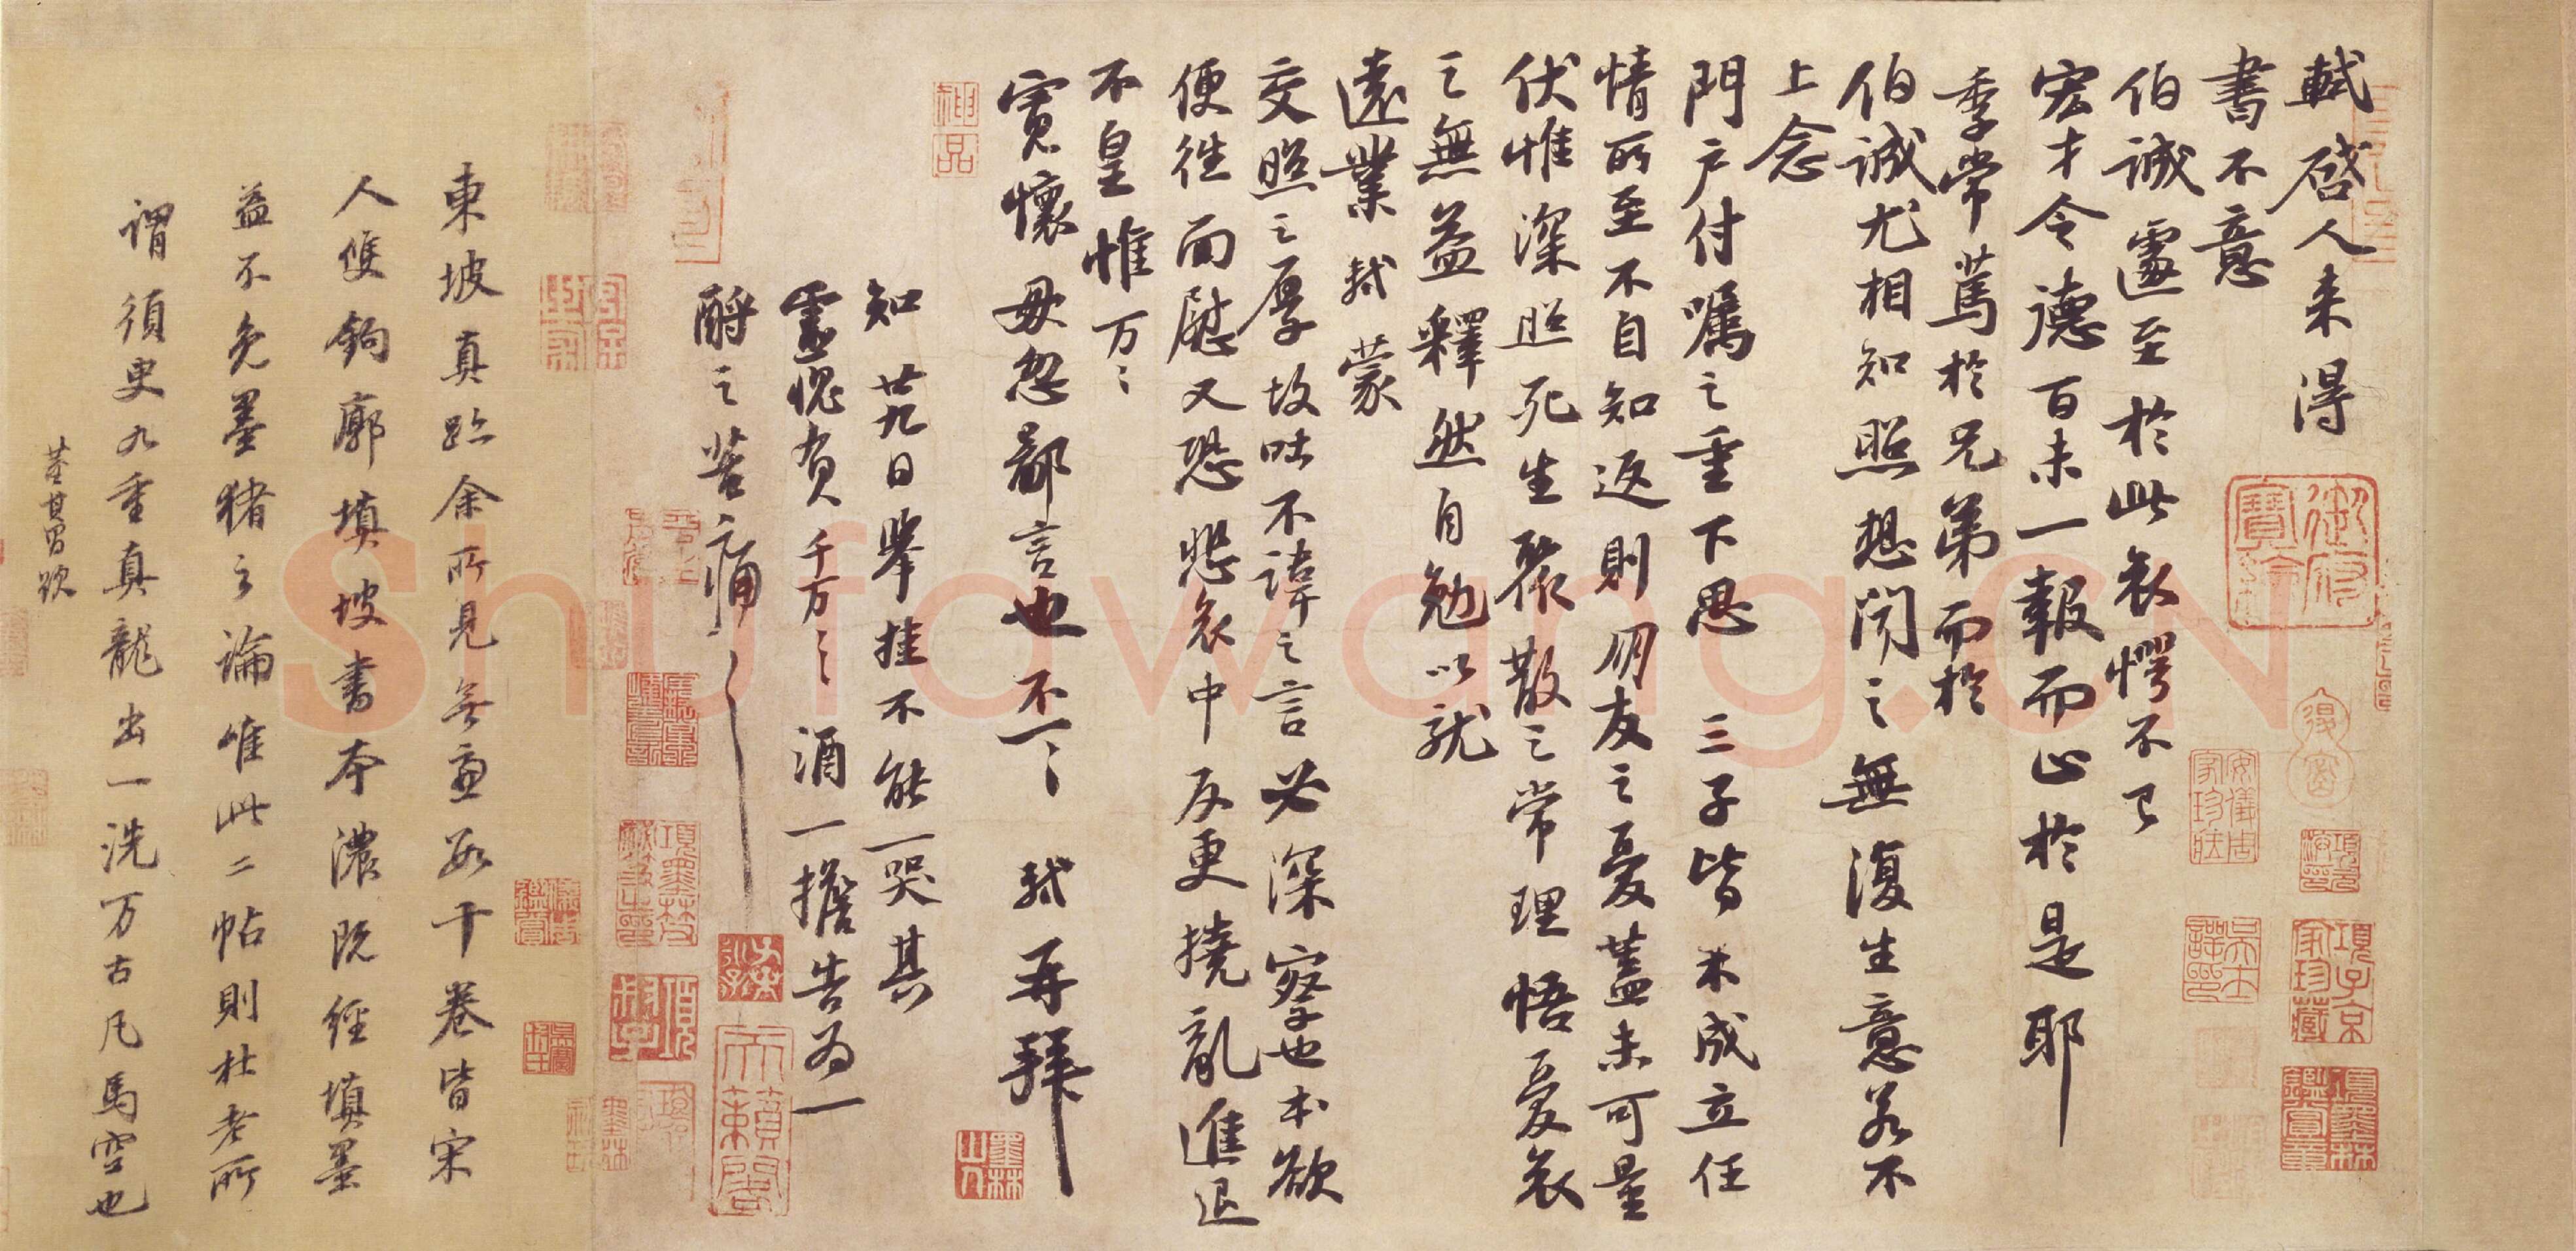 軾啓人来得
書不意
伯誠遽至於此哀愕不已
宏才令德百未一報而止於是耶
季常篤於兄弟而於
伯誠尤相知照想聞之無復生意若不
上念
門户付囑之重下思三子皆未成立任
情所至不自知返則朋友之憂蓋未可量
伏惟深照死生聚散之常理悟憂哀
之無益釋然自勉以就
遠業軾蒙
交照之厚故吐不諱之言必深察也本欲
便往面慰又恐悲哀中反更撓亂進退
不皇惟万万
寬懷毋忽鄙言也不一一軾再拜
知廿九日舉挂不能一哭其
靈愧負千万千万酒一擔告為一
酹之苦痛苦痛
神品
東坡真跡余所見無慮數十卷皆宋
人雙鉤廓填坡書本濃既經填墨
益不免墨猪之論唯此二帖則杜老所
謂須臾九重真龍出一洗万古凡馬空也
董其昌題
御府寶繪
安儀周家珍藏
項子京家珍藏
項墨林鑑賞章
天籟閣
墨林山人
Shufawang.CN